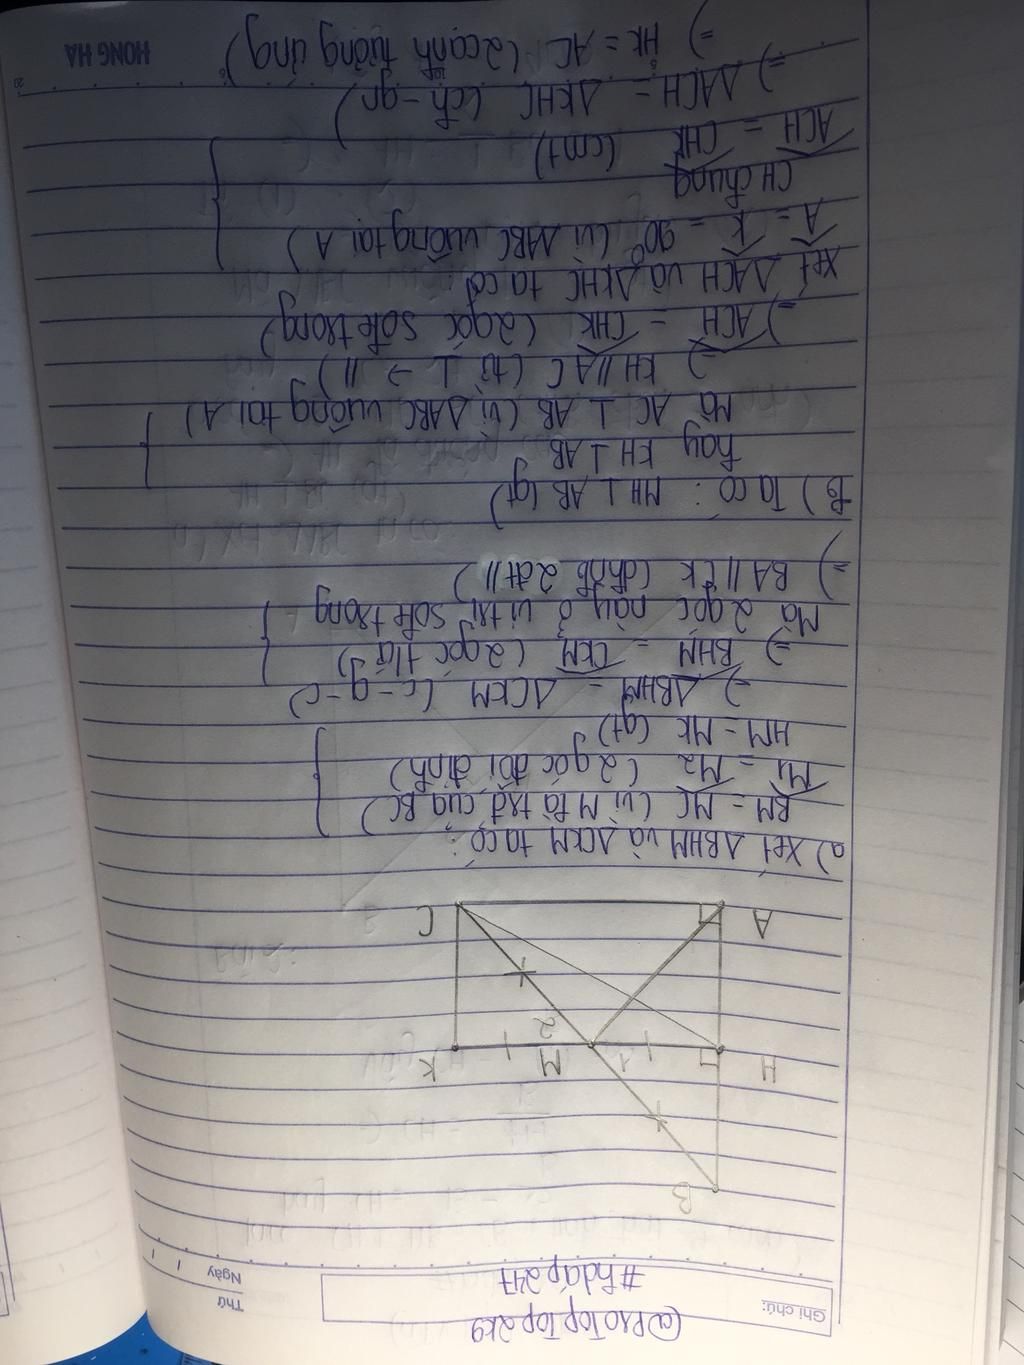 Ghi chú:
@ProTopTop2k9
#hdáp247
Thứ
Ngày / /
B
H 1 M K
2
A C
a) Xét ΔBHM và ΔCKM ta có:
BM = MC (vì M là trđ của BC)
M1 = M2 (2 góc đối đỉnh)
HM = MK (gt)
=> ΔBHM = ΔCKM (c-g-c)
=> BHM = CKM (2 góc t/ứ)
Mà 2 góc này ở vị trí sole trong
=> BA // CK (dhnb 2đt //)
b) Ta có: MH ⊥ AB (gt)
hay KH ⊥ AB
Mà AC ⊥ AB (vì ΔABC vuông tại A)
=> KH // AC (từ ⊥ → //)
=> ACH = CHK (2 góc sole trong)
Xét ΔACH và ΔKHC ta có:
A = K = 90° (vì ΔABC vuông tại A)
CH chung
ACH = CHK (cmt)
=> ΔACH = ΔKHC (ch-gn)
=> HK = AC (2 cạnh tương ứng)
HONG HA